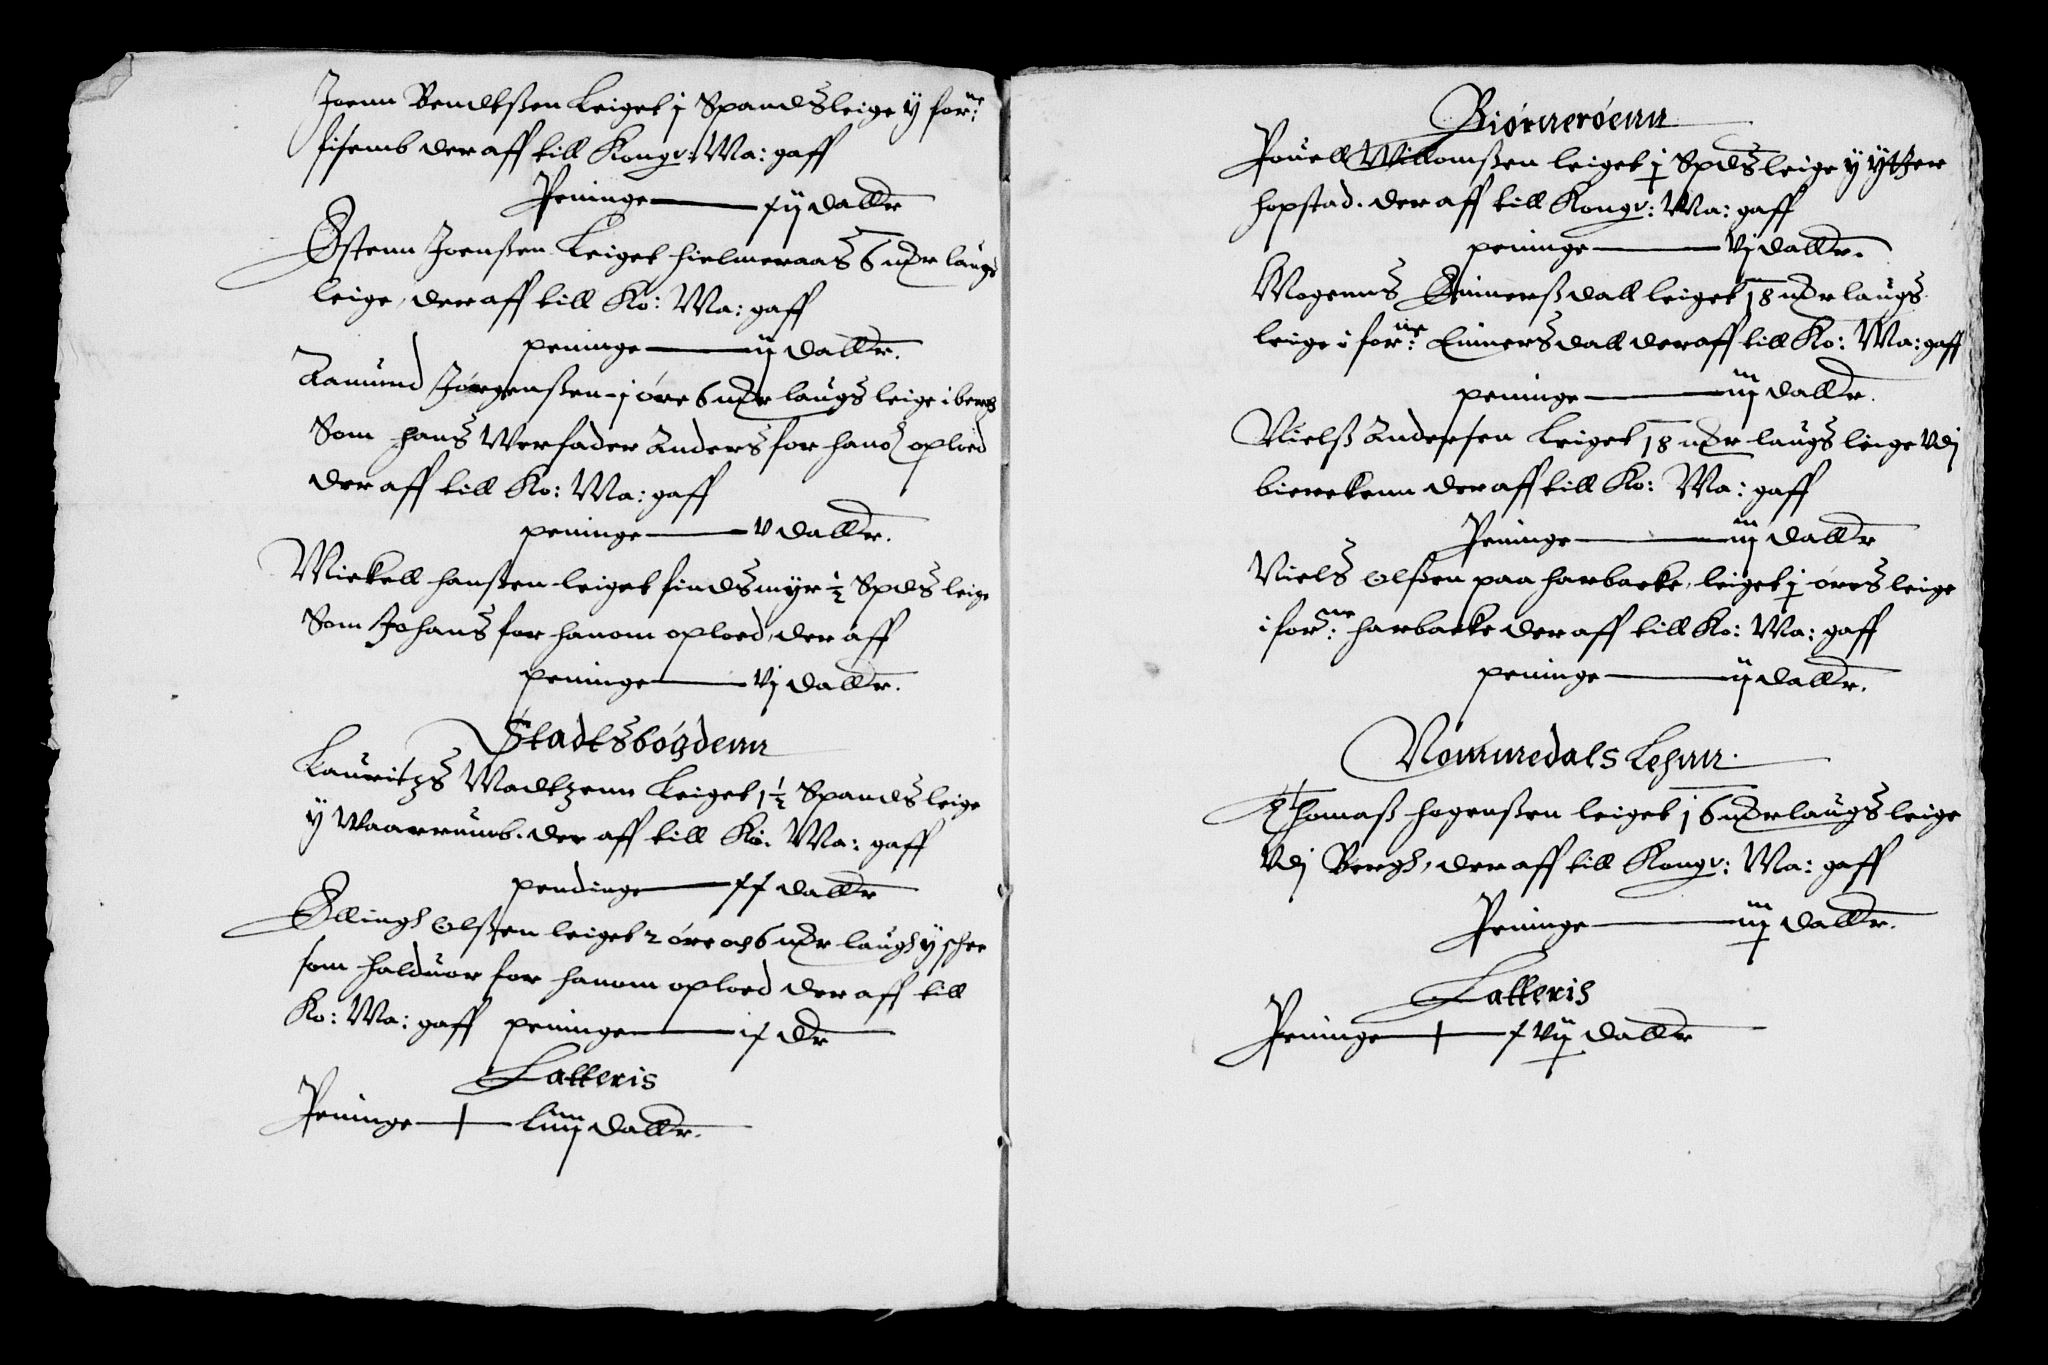 Joenn Bendtßen Leiget j Spandsleige y for:ne
fisemb deraff till Kongr: Ma: gaff
Peninge — xij dallr
Østenn Joenßen Leiget hielmeraas 6 mkr laugs
leige, deraff till Ko: Ma: gaff
peninge — ij dallr.
Aamund Jørgenßen j øre 6 mkr laugs leige i berg
Som hans Werfader Anders for hanom oploed
deraff till Ko: Ma: gaff
peninge — v dallr.
Mickell hanßen leiget findsmyr ½ Spds leige
Som Johans for hanom oploed, der aff
peninge — vj dallr.
Stadtsbøgdenn
Lauritzs Madtzenn Leiget 1½ Spandsleige
y Waarrumb. der aff till Ko: Ma: gaff
pendinge — xx dallr
Ellingh Olßen leiget 2 øre och 6 mkr laugh y schee
som halduor for hanom oploed der aff till
Ko: Ma: gaff peninge — ix dlr
Latteris
Peninge — Liiij dallr.
Biørnerøenn
Pouell Willomßen leiget j Spdsleige y ytter
hopstad. der aff till Kongr: Ma: gaff
peninge — vj dallr.
Mogenns Einnerßdall leiget 18 mkr laugs
leige i for:ne Einnersdall der aff till Ko: Ma: gaff
peninge — iij dallr.
Nielß Andersen Leiget 18 mkr laugs leige Vdj
bierekenn der aff till Ko: Ma: gaff
Peninge — iij dallr
Niels Olßen paa harbacke, leiget j øres leige
i for:ne harbacke der aff till Ko: Ma: gaff
peninge — ij dallr.
Nommedals Lehnn.
Thomaß hogenßen leiget 16 mkr laugs leige
Vdj Bergh, der aff till Kongr: Ma: gaff
Peninge — iij dallr.
Latteris
Peninge — xvij dallr